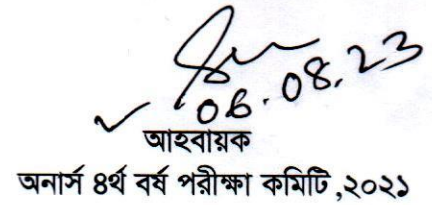 06.08.23
আহবায়ক
অনার্স ৪র্থ বর্ষ পরীক্ষা কমিটি,২০২১